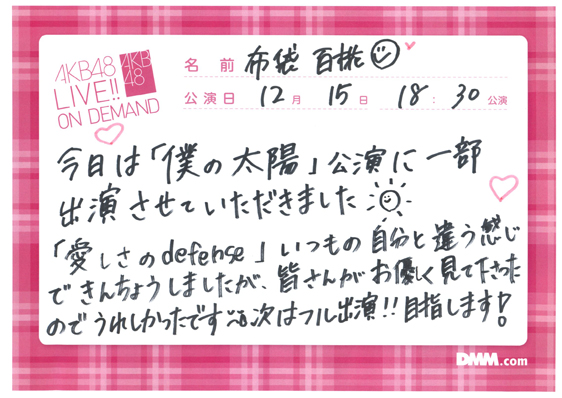 AKB48
LIVE!!
ON DEMAND
AKB
48
名前 布袋 百椛
公演日 12月 15日 18:30公演
今日は「僕の太陽」公演に一部
出演させていただきました
「愛しさのdefense」いつもの自分と違う感じ
できんちょうしましたが、皆さんがお優しく見て下さった
のでうれしかったです 次はフル出演!!目指します!
DMM.com